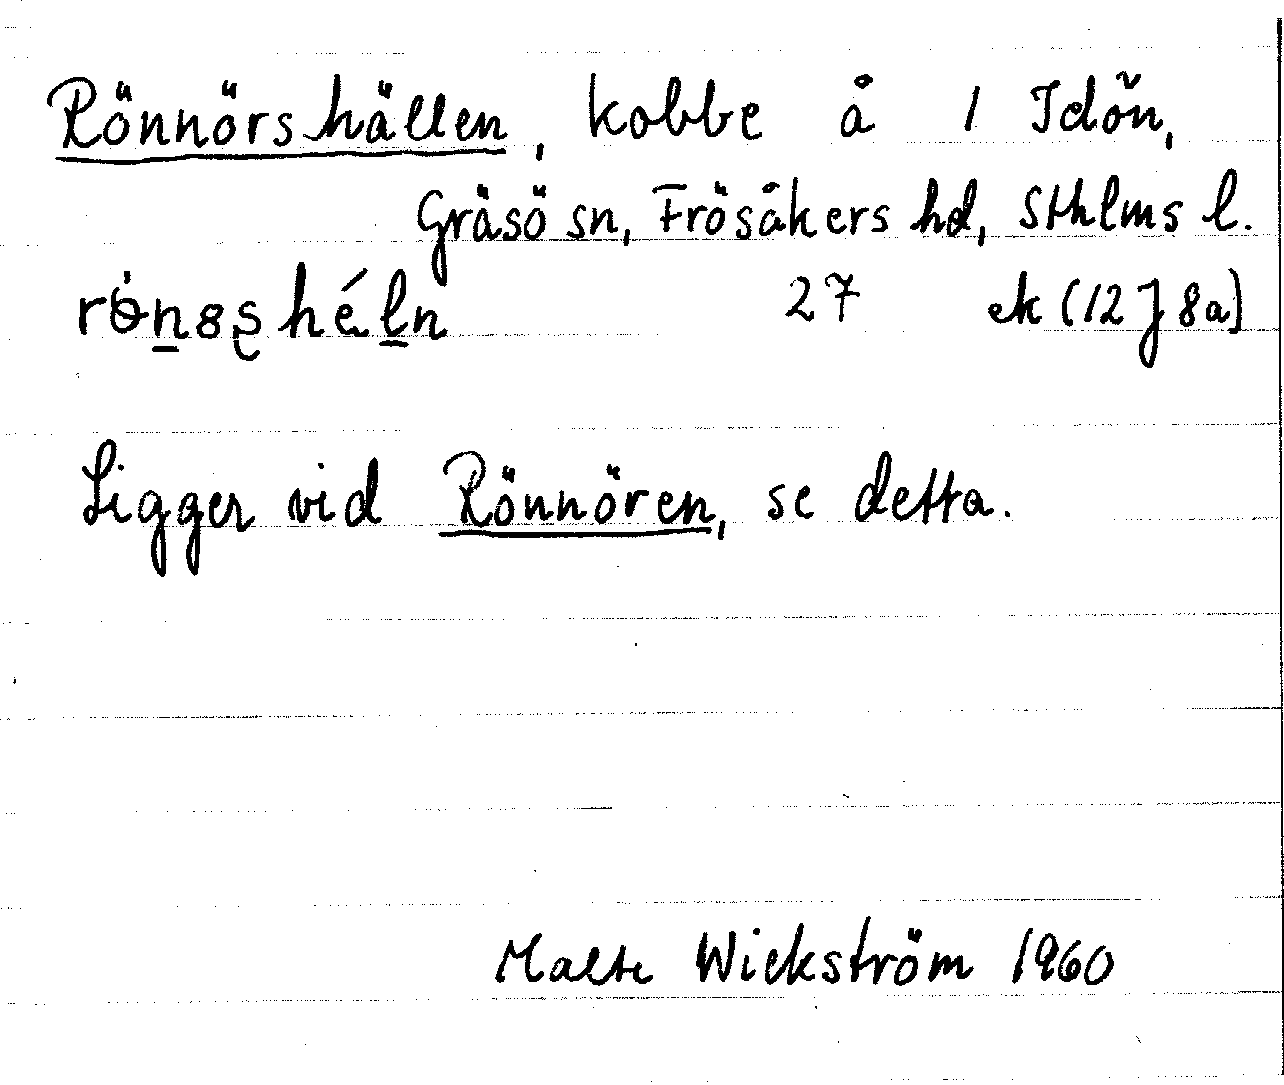 Rönnörshällen, kobbe å 1 Idön,
Gräsö sn, Frösåkers hd, Sthlms l.
27 ek (12 J 8a)
Ligger vid Rönnören, se detta.
Malte Wickström 1960